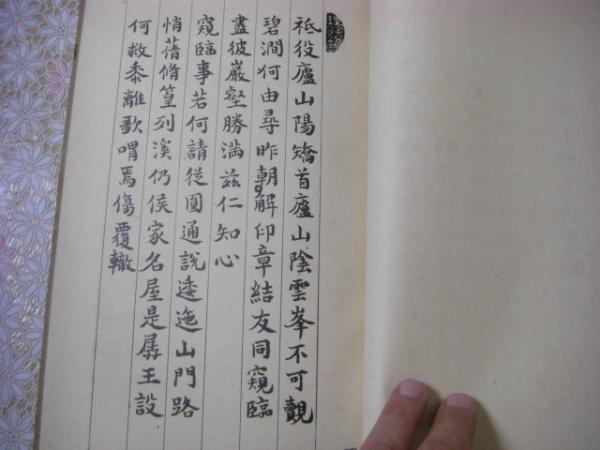 祗役廬山陽矯首廬山陰雲峯不可覿
碧澗何由尋昨朝解印章結友同窺臨
盡彼巖壑勝滿兹仁知心
窺臨事若何請從圓通說逶迤山門路
悄蒨脩篁列溪仍侯家名屋是孱王設
何救黍離歌喟焉傷覆轍